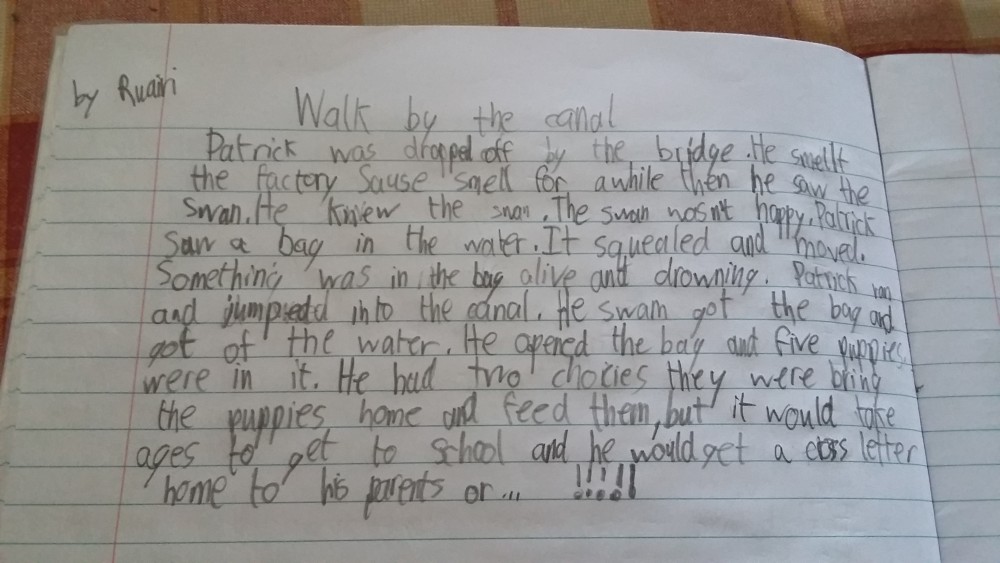 by Ruairi
Walk by the canal
Patrick was dropped off by the bridge. He smellt
the factory sause smell for awhile then he saw the
swan. He knew the swan. The swan wasn't happy. Patrick
saw a bag in the water. It squealed and moved.
Something was in the bag alive and drowning. Patrick ran
and jumped into the canal. He swam got the bag and
got of the water. He opened the bag and five puppies
were in it. He had two choties they were bring
the puppies home and feed them, but it would take
ages to get to school and he would get a cross letter
home to his parents or... !!!!!